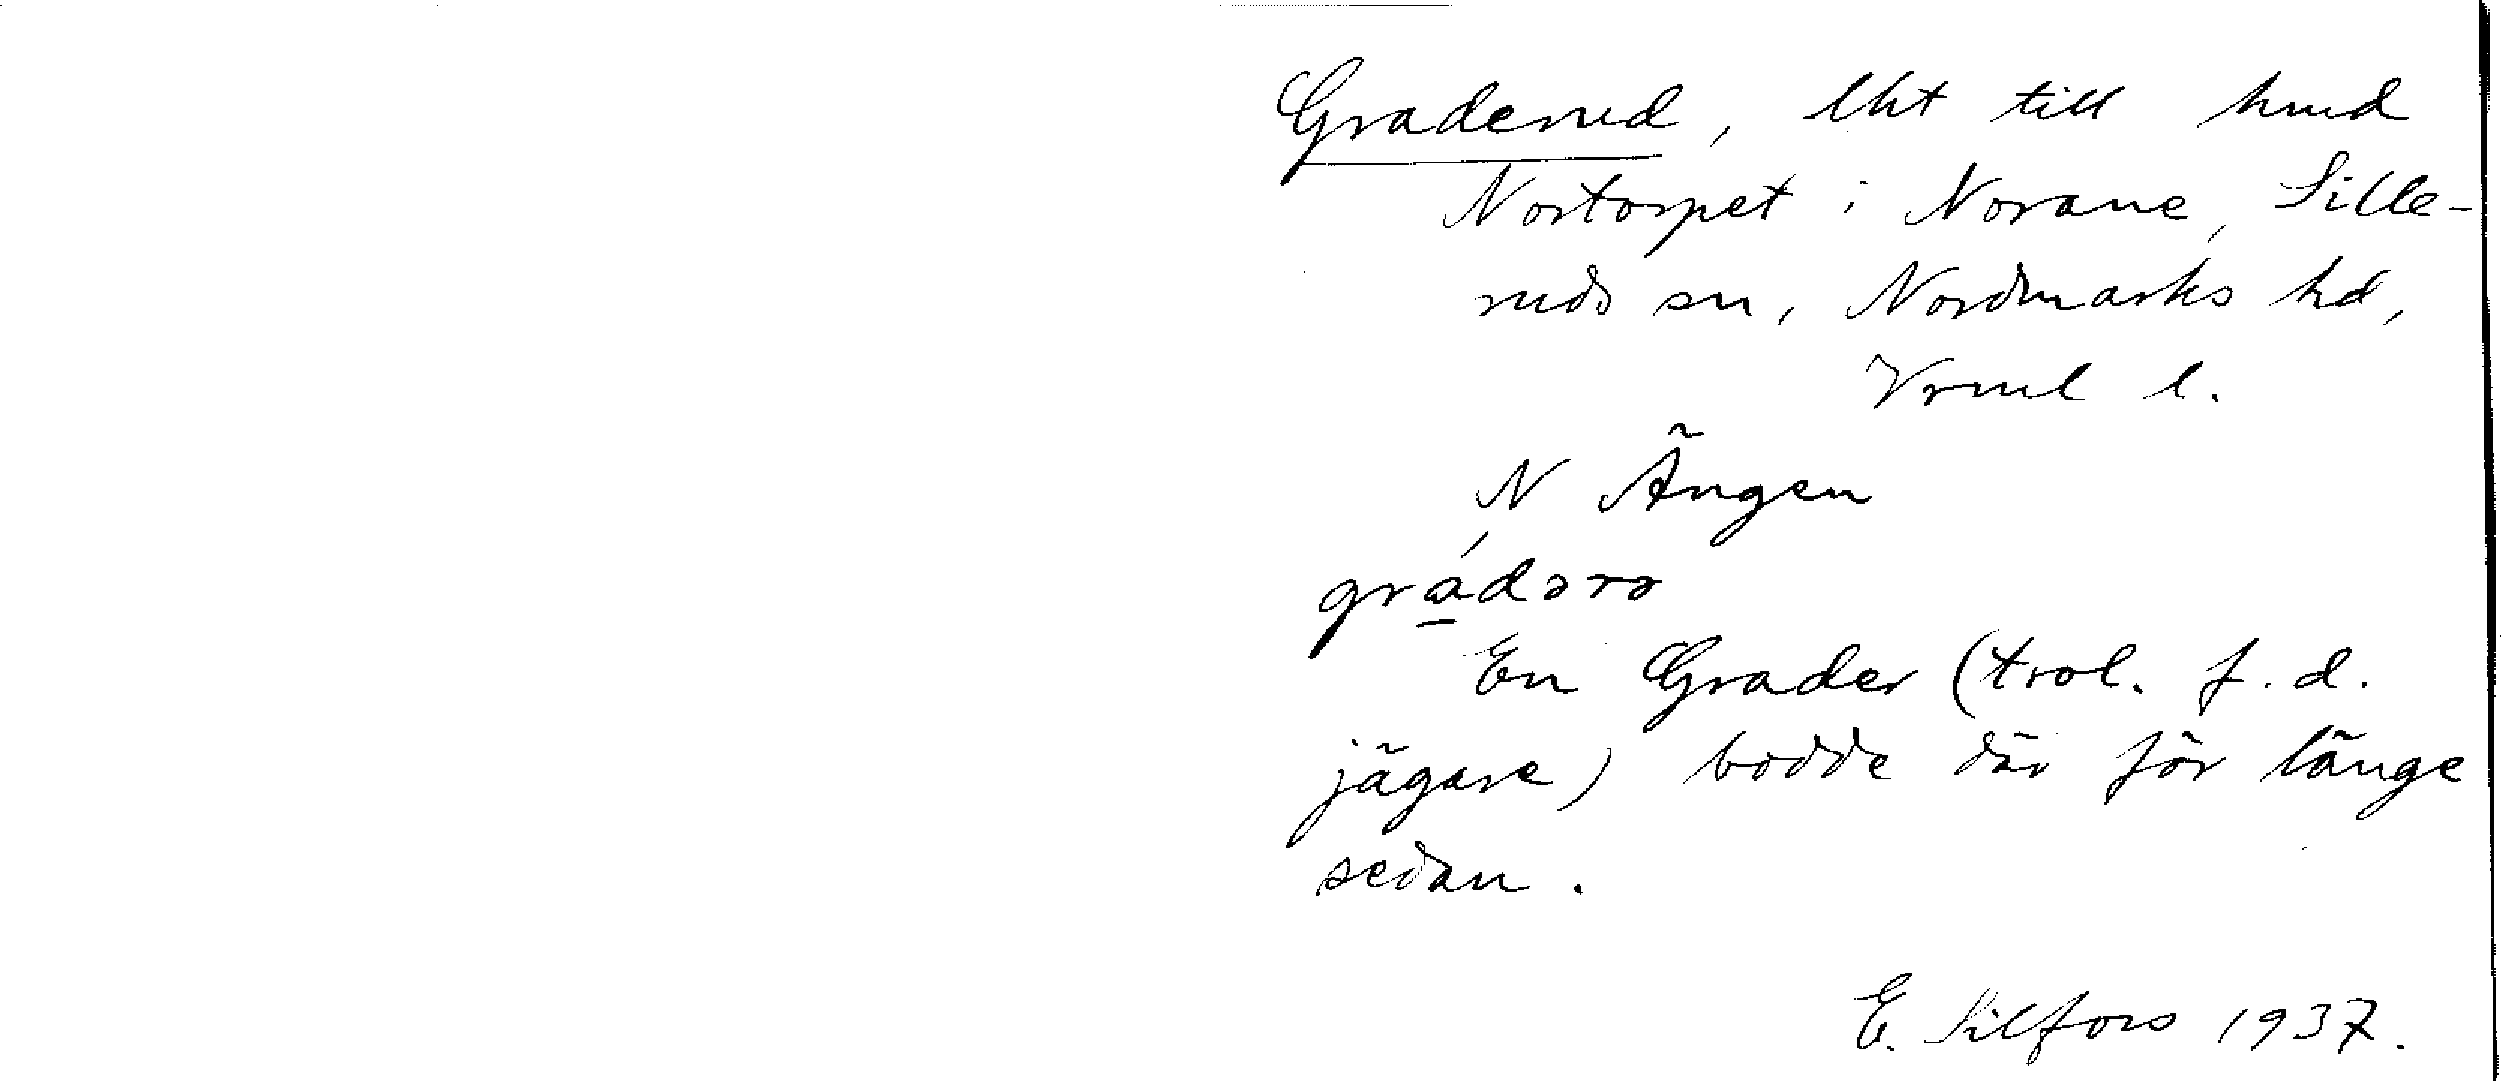 Gradernd, lht till hmd
Nortorpet i Norane, Sille-
ruds sn, Nordmarks hd,
Vrml l.
N Ängen
grádərə
En Grader (trol. f.d.
jägare) bodde där för länge
sedan.
E. Silfors 1937.